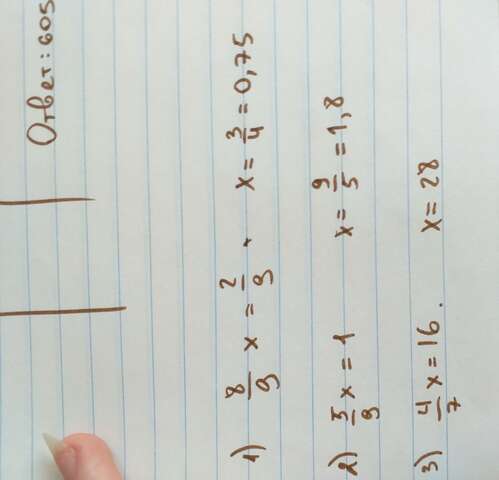 Ответ: 60
1) 8/9 x = 2/9 x = 3/4 = 0,75
2) 5/9 x = 1 x = 9/5 = 1,8
3) 4/7 x = 16. x = 28